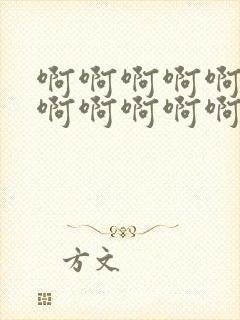 啊啊啊啊啊
啊啊啊啊啊
方文